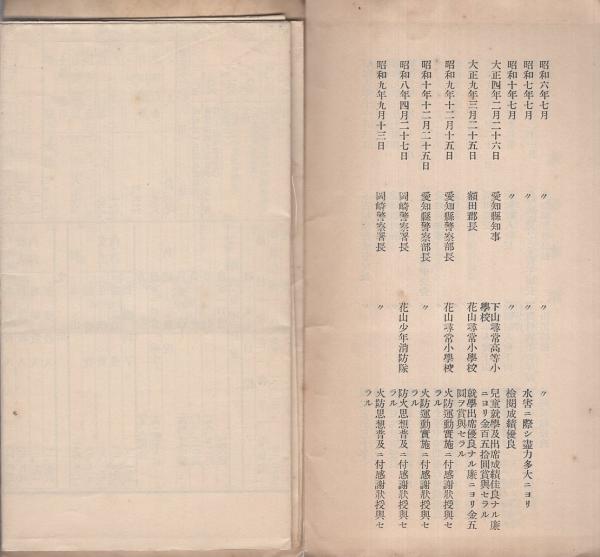 昭和六年七月 〃 〃 〃
昭和七年七月 〃 〃 水害ニ際シ盡力多大ニヨリ
昭和十年七月 〃 〃 檢閲成績優良
大正四年二月二十六日 愛知縣知事 下山尋常高等小學校 兒童就學及出席成績佳良ナル廉ニヨリ金百五拾圓賞與セラル
大正九年三月二十五日 額田郡長 花山尋常小學校 就學出席優良ナル廉ニヨリ金五圓ヲ賞與セラル
昭和九年十二月十五日 愛知縣警察部長 花山尋常小學校 火防運動實施ニ付感謝狀授與セラル
昭和十年十二月二十五日 愛知縣警察部長 〃 火防運動實施ニ付感謝狀授與セラル
昭和八年四月二十七日 岡崎警察署長 花山少年消防隊 防火思想普及ニ付感謝狀授與セラル
昭和九年九月十三日 岡崎警察署長 〃 火防思想普及ニ付感謝狀授與セラル